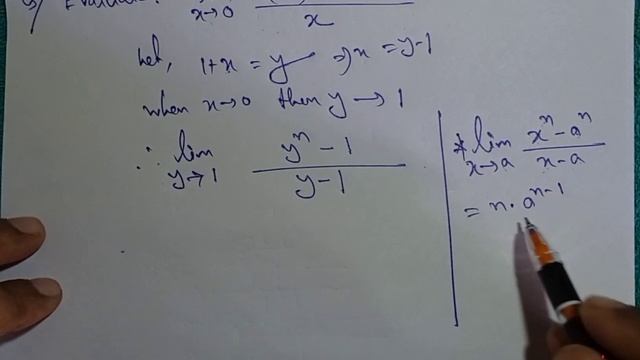 x→0 x
Let, 1+x = y ⇒ x = y-1
when x→0 then y → 1
∴ lim y→1 (y^n - 1)/(y-1)
* lim x→a (x^n - a^n)/(x-a)
= n · a^(n-1)